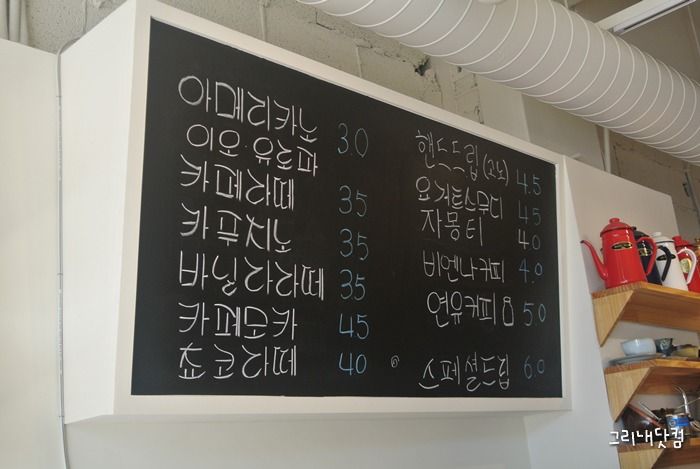 아메리카노 3.0
이오.유로파
카페라떼 35
카푸치노 35
바닐라라떼 35
카페모카 45
쵸코라떼 40
핸드드립 4.5
요거트스무디 45
자몽티 40
비엔나커피 4.0
연유커피 5.0
스페셜드립 6.0
그리내닷컴